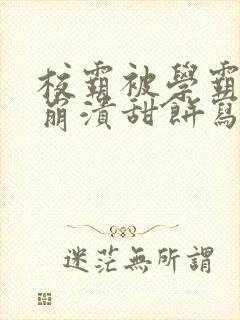 校霸被學霸
崩潰甜餅寫
迷茫無所謂